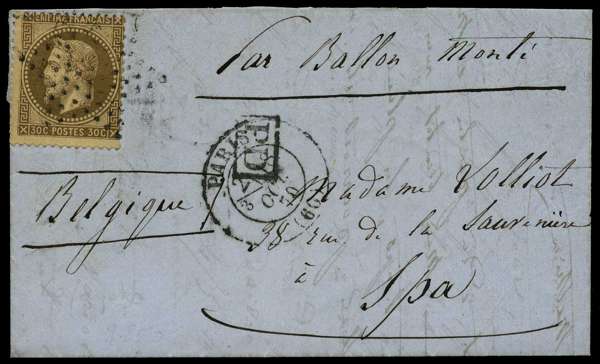 EMPIRE FRANÇAIS
30C POSTES 30C
Par Ballon Monté
PD
PARIS
OCT
70
(60)
Belgique
Madame Volliot
38 rue de la Sauvenière
à
Spa